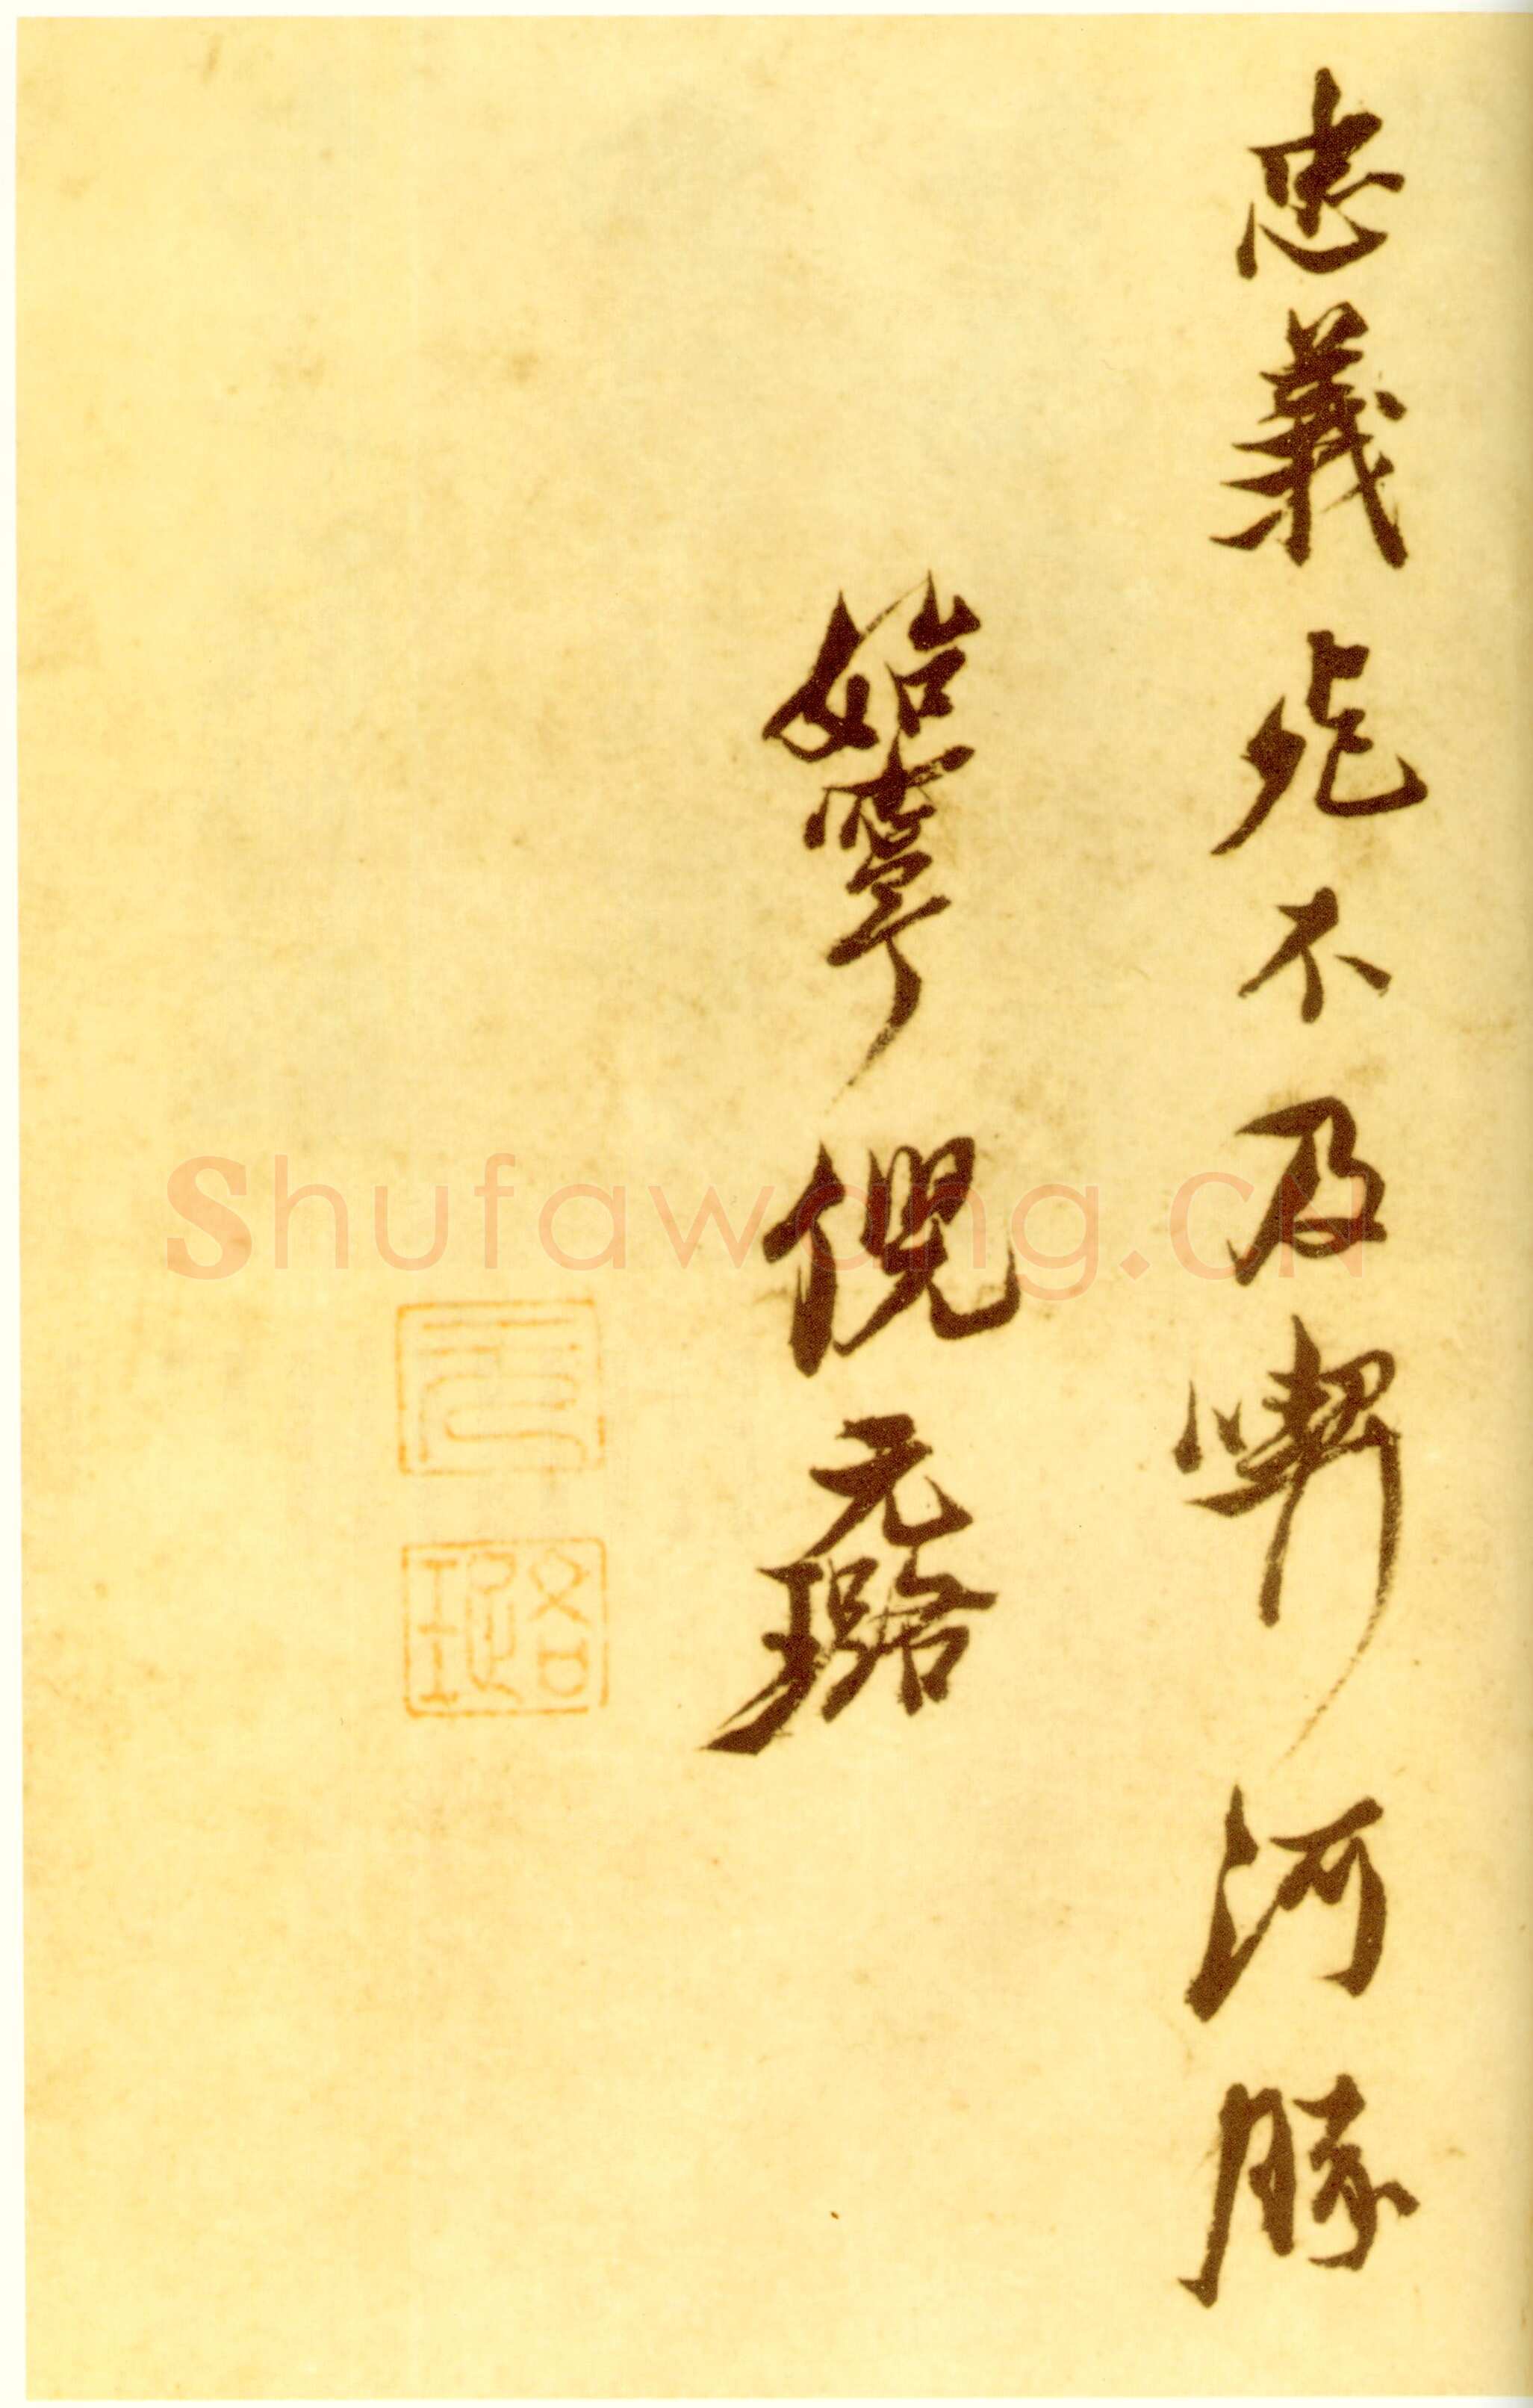 忠義死不及喫河豚
始寧倪元璐
元
璐
Shufawang.CN